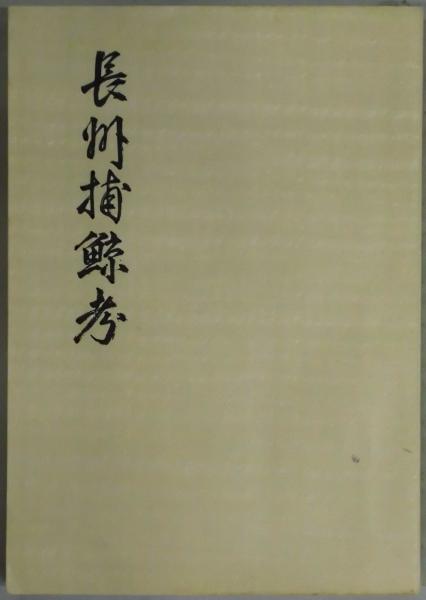 長州捕鯨考